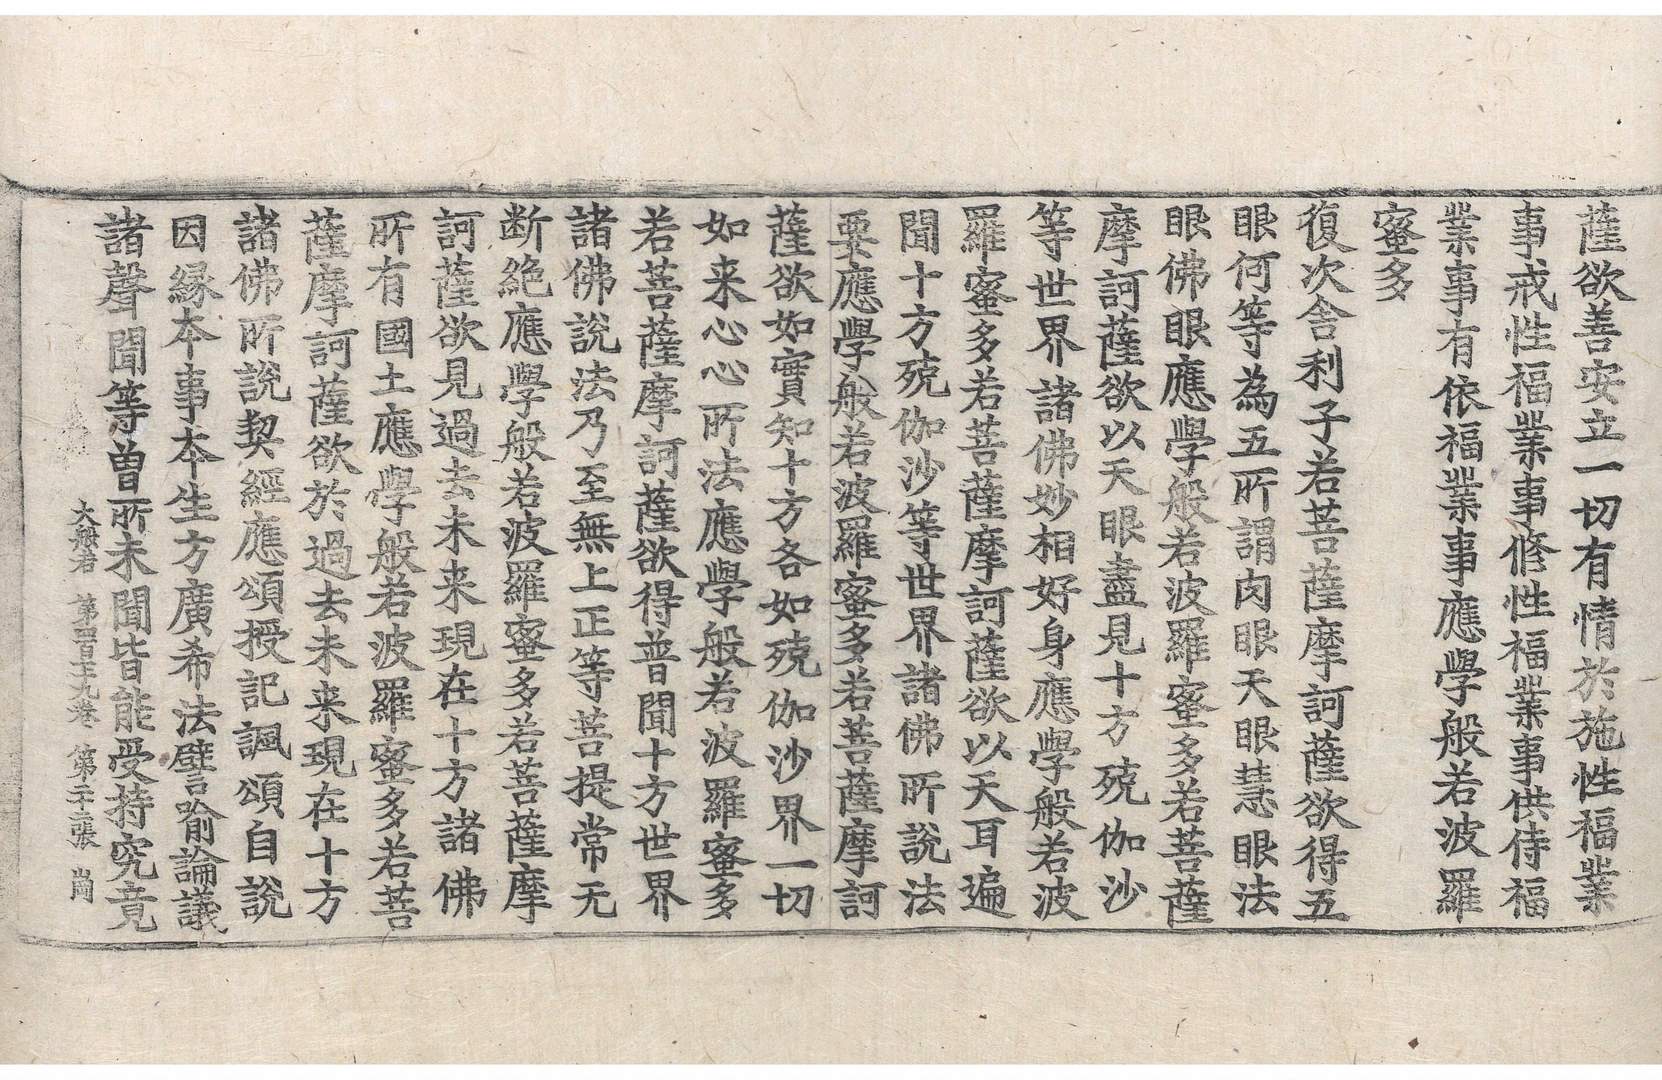 薩欲善安立一切有情於施性福業
事戒性福業事修性福業事供侍福
業事有依福業事應學般若波羅
蜜多
復次舎利子若菩薩摩訶薩欲得五
眼何等為五所謂肉眼天眼慧眼法
眼佛眼應學般若波羅蜜多若菩薩
摩訶薩欲以天眼盡見十方殑伽沙
等世界諸佛妙相好身應學般若波
羅蜜多若菩薩摩訶薩欲以天耳遍
聞十方殑伽沙等世界諸佛所說法
要應學般若波羅蜜多若菩薩摩訶
薩欲如實知十方各如殑伽沙界一切
如来心心所法應學般若波羅蜜多
若菩薩摩訶薩欲得普聞十方世界
諸佛說法乃至無上正等菩提常无
断絶應學般若波羅蜜多若菩薩摩
訶薩欲見過去未来現在十方諸佛
所有國土應學般若波羅蜜多若菩
薩摩訶薩欲於過去未来現在十方
諸佛所說契經應頌授記諷頌自說
因縁本事本生方廣希法譬喻論議
諸聲聞等曽所未聞皆能受持究竟
大般若 第四百二十九卷 第二十二張 崗